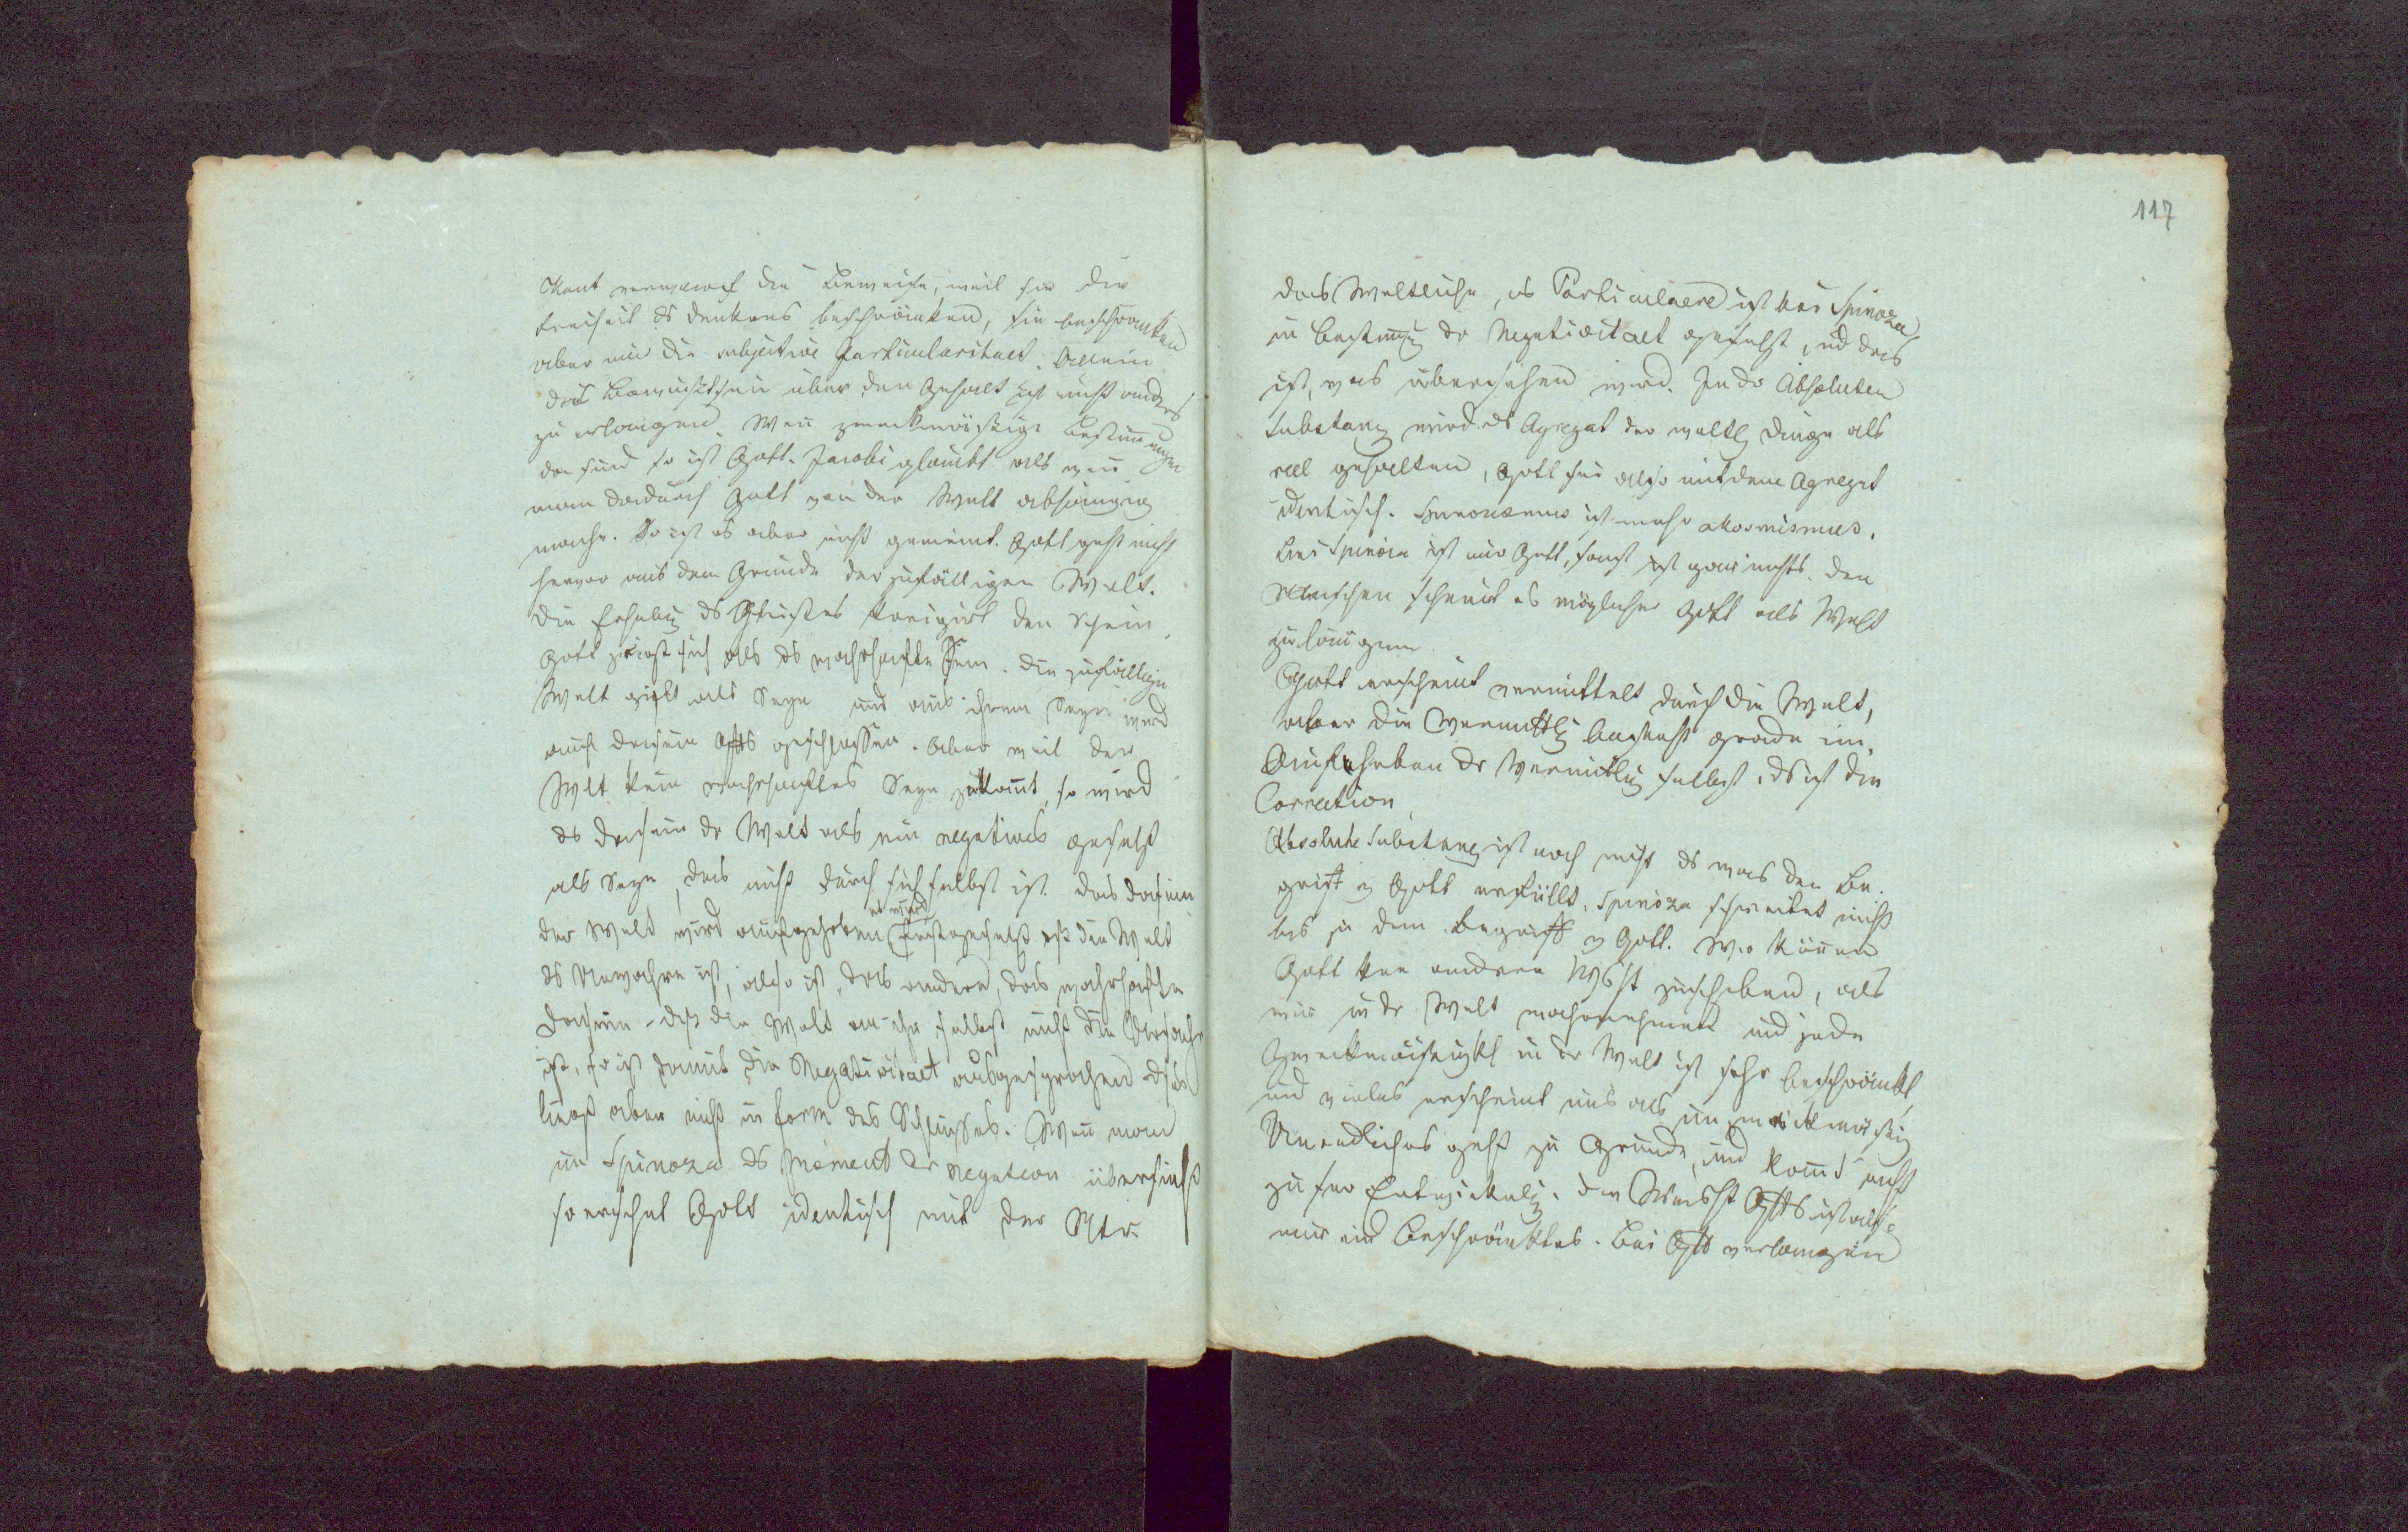 Kant verwarf die Beweise, weil sie die
Freiheit ds Denkens beschränken, sie beschränken
aber nur die subjective Particularitaet. Allein
das Bewußtsein über den Gehalt ist nicht anders
zu erlangen. Weñ zweckmässige Bestim̄ungen
da sind so ist Gott. Jacobi glaubt als weñ
man dadurch Gott von der Welt abhängig
mache. So ist es aber nicht gemeint. Gott geht nicht
hervor aus dem Grunde der zufälligen Welt.
Die Erhebg ds Geistes korigirt den Schein,
Gott zeigt sich als ds wahrhafte Sein. Die zufällige
Welt gilt als Seyn und aus ihrem Seyn wird
auch Dasein Gotts geschlossen. Aber weil der
Welt kein wahrhaftes Seyn zukom̄t, so wird
ds Dasein dr Welt als ein negatives gesetzt
als Seyn, das nicht durch sich selbst ist. Das Dasein
der Welt wird aufgehoben es wird festgesetzt dß die Welt
ds Unwahre ist, also ist das andere, das wahrhafte
Dasein - dß die Welt an ihr selbst nicht die Ursache
ist, so ist damit die Negativitaet ausgesprochen dß
liegt aber nicht in Form des Schlusses. Weñ man
in Spinoza ds Moment der Negation übersieht
so erscheint Gott identisch mit der Ntr.
117
das Weltliche, ds Particulaere ist bei Spinoza
in Bestim̄g dr Negativitaet gesetzt, ud das
ist, was übersehen wird. In dr Absoluten
Substanz wird ds Agregat der weltl Dinge als
reel gehalten, Gott sei also mit dem Agregat
identisch. Spinozismus ist mehr akosmismus.
Bei Spinoza ist nur Gott, sonst ist gar nichts. Den
Menschen scheint es möglicher Gott als Welt
zu läugnen
Gott erscheint vermittelt durch die Welt,
aber die Vermittlg besteht grade im
Aufheben dr Vermittlg selbst, ds ist die
Correction
Absolute Substanz ist noch nicht ds was den Be-
griff v Gott erfüllt. Spinoza schreitet nicht
bis zu dem Begriff v Gott. Wir köñen
Gott keine andere Wsht zuschreiben, als
wir in dr Welt wahrnehmen und jede
Zweckmäsigkt in dr Welt ist sehr beschränkt,
und vieles erscheint uns als unzweckmäsig
Unendliches geht zu Grunde, und kom̄t nicht
zu sr Entwickelg. Die Weisht Gotts ist also
nur eine Beschränktes. Bei Gott verlangen